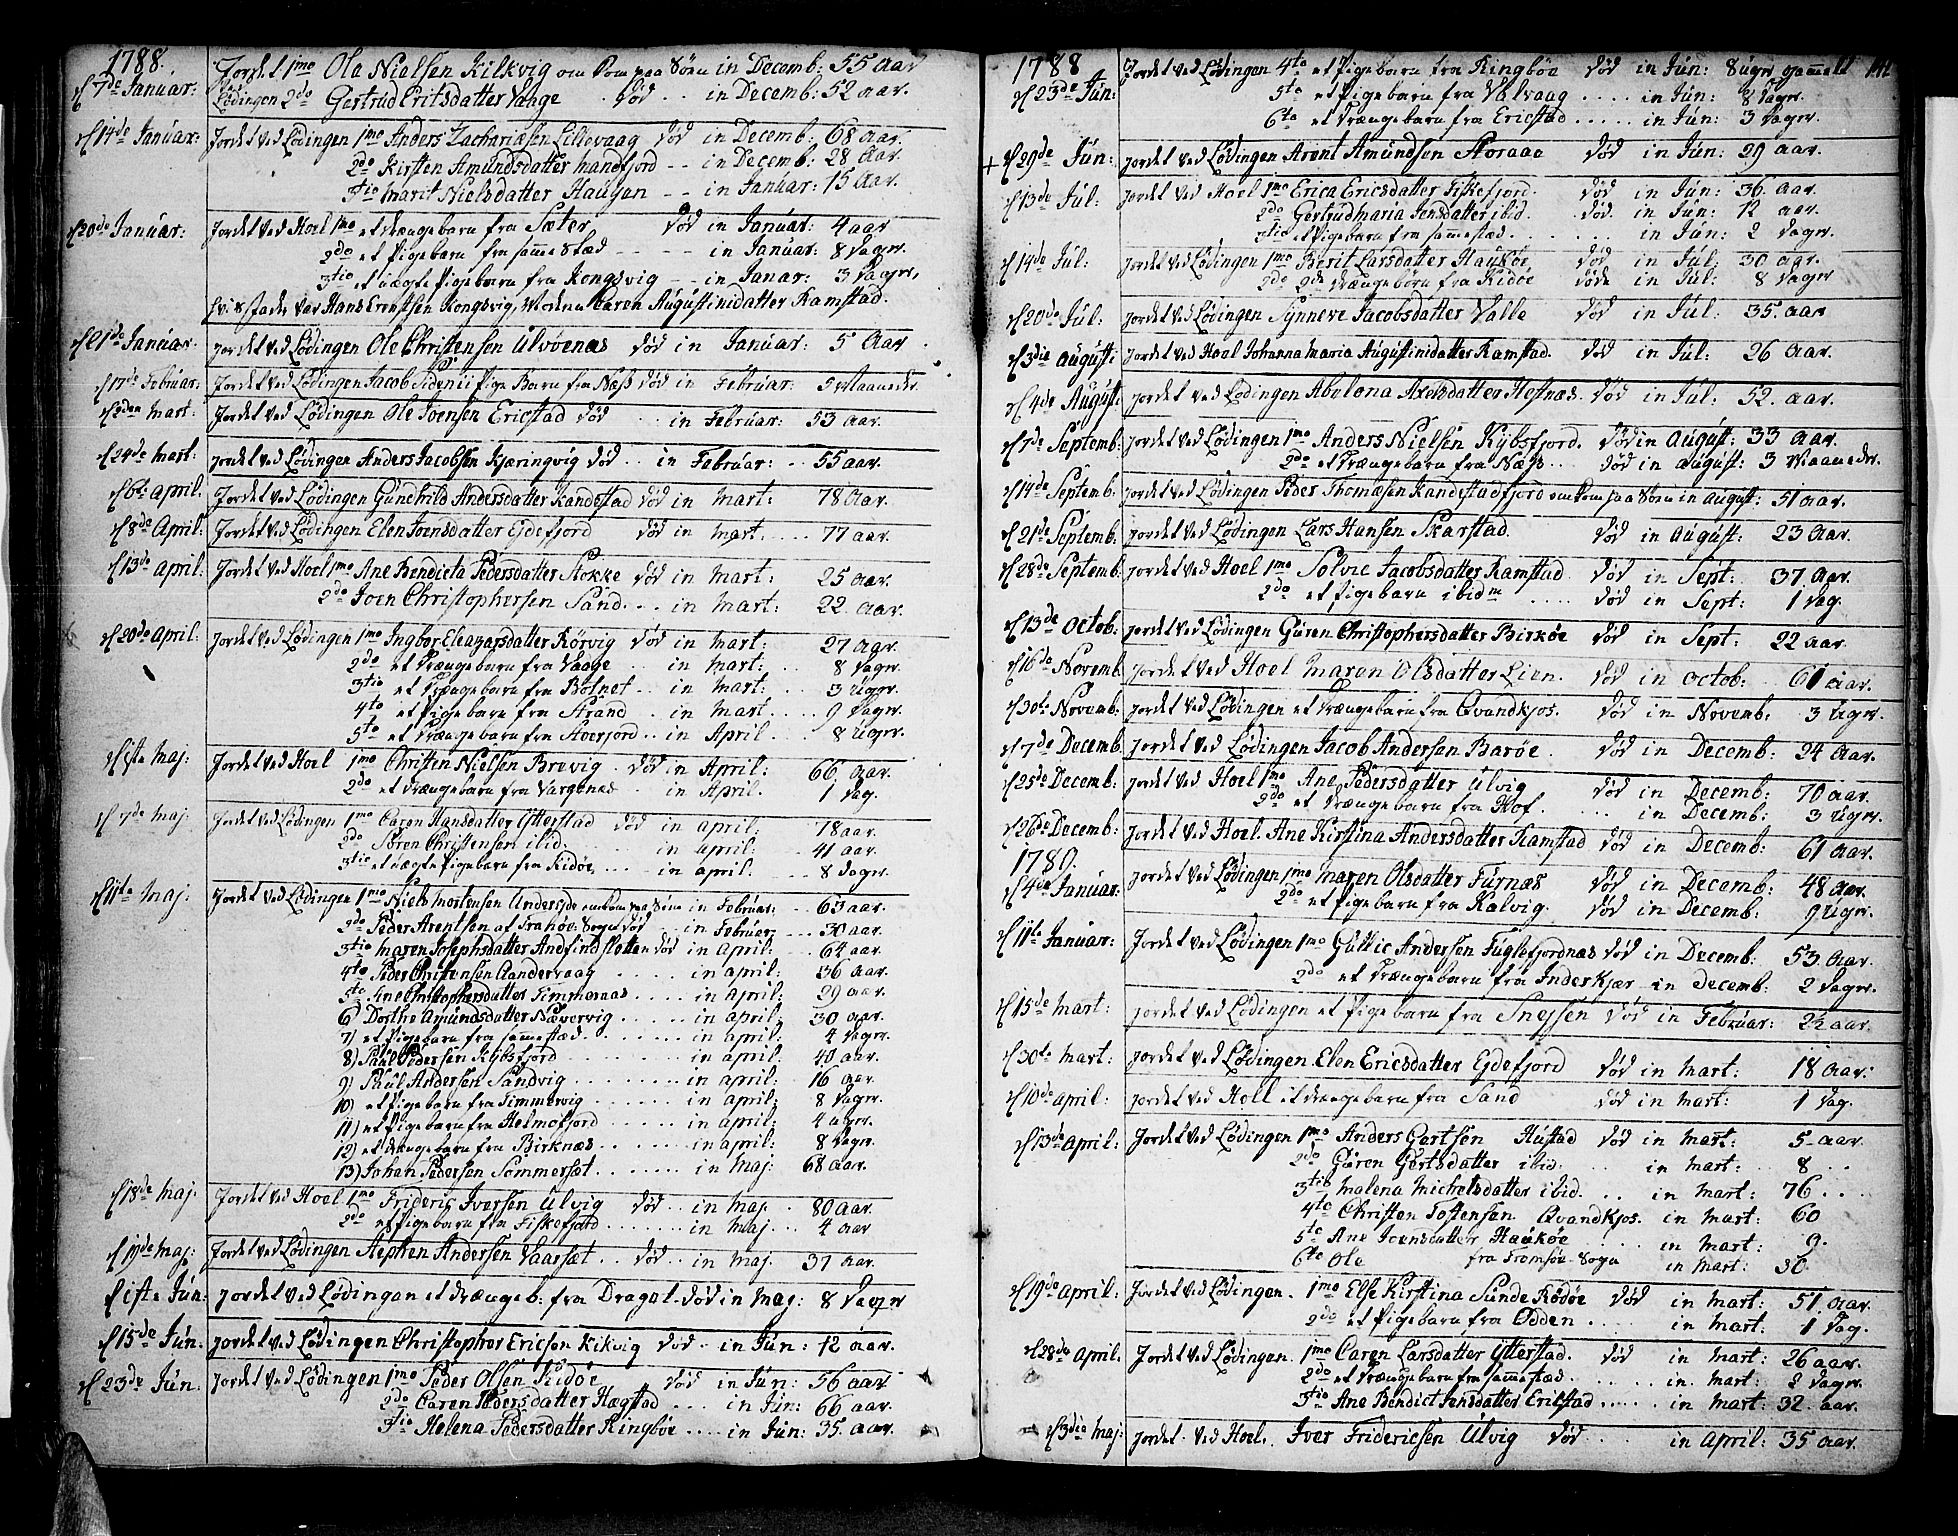 1788.
d 7de Januar: Jordet 1mo Ole Nielsen Kilkvig om kom paa Søen in Decemb: 55 Aar
Lødingen 2do Gertrud Eritsdatter Vaage . død .. in Decemb: 52 aar.
d 14de Januar: Jordet ved Lødingen 1mo Anders Zachariæsen Lillevaag død in Decemb: 68 aar.
2do Kirsten Amundsdatter Hanefjord -- in Decemb: 28 aar.
3tio Marit Nielsdatter Haugen -- in Januar: 15 Aar.
d 20de Januar: Jordet ved Hoel 1mo et drængebarn fra Sæter død in Januar: 4 aar
2do et Pigebarn fra samme Stæd in Januar: 8 dager.
3tio et uægte Pigebarn fra Kongsvig - in Janar: 3 dager,
hvis fader var Hans Erentsen Kongsvig, Moderen Caren Augustinidatter Kamstad.
d 21de Januar. Jordet ved Lødingen Ole Christensen Ulvøenæs død in Januar: 5 Aar
d 17de Februar: Jordet ved Lødingen Jacob Sidenii Pige Barn fra Næss død in Februar: 5 Maaneder.
d 2den Mart: Jordet ved Lødingen Ole Joensen Ericstad død in Februar: 53 aar.
d 24de Mart: Jordet ved Lødingen Anders Jacobsen Kjæringvig død in Februar: 55 aar.
d 6te April: Jordet ved Lødingen Gundhild Andersdatter Kandestad død in Mart: 78 Aar.
d 8de April: Jordet ved Lødingen Elen Joensdatter Ejdefjord død in Mart. 77 aar.
d 13de April: Jordet ved Hoel 1mo Ane Bendicta Pedersdatter Stokke død in Mart: 25 aar.
2do Joen Christophersen Sand. in Mart: 22. aar.
d 20de April: Jordet ved Lødingen 1mo Ingbor Eleazarsdatter Rørvig død in Mart: 27 aar.
2do et drængebarn fra Vaage in Mart: 8 dager.
3tio et drængebarn fra Botnet in Mart: 3 uger.
4to et Pigebarn fra Strand in Mart 9 dager.
5to et drængebarn fra Stverjord in April 8 uger.
d 1ste Maj: Jordet ved Hoel 1mo Christen Nielsen Brevig død in April: 66 aar.
2do et drængebarn fra Vargenæs in April. 1 dag.
d 7de Maj. Jordet ved Lødingen 1mo Caren Hansdatter Ytterstad død in April: 78 aar.
2do Søren Christensen ibid. in April: 41 aar.
3tio et uægte Pigebarn fra Ridøe. in April: 8 dager.
d 11te Maj: Jordet ved Lødingen 1mo Niels Mortensen Anderejde omkom paa Søen in Februar: 63 aar.
2do Peder Arentsen af Tranøe Sogn død in Februar 30 aar.
3tio Maren Josephsdatter Andfindslotten død in April: 64 aar.
4to Peder Christensen Sandervaag in April: 36 aar.
5to Ane Christophersdatter Timmernæs in April: 29 aar.
6 Dorthe Amundsdatter Nævervig in April: 30 aar.
7) et Pigebarn fra sammestæd in April: 4 dager.
8) Poul Pedersen Kybsfjord in April: 40 aar.
9) Poul Andersen Sandvig in April: 16 aar.
10) et Pigebarn fra Timmervig in April: 8 dager.
11) et Pigebarn fra Helmofjord in April: 4 uger.
12) et drængebarn fra Birknæs in April: 8 dager.
13) Johan Pedersen Sommersæt in Maj: 68 aar.
d 18de Maj. Jordet ved Hoel 1mo Frideric Iversen Ulvig død in Maj. 80 aar.
2do et Pigebarn fra Fiskefjord in Maj. 4 aar
d 19de Maj: Jordet ved Lødingen Stephen Andersen Vaarsæt død in Maj. 37 aar.
d 1ste Jun: Jordet ved Lødingen et drængeb: fra Dragel død in Maj: 8 dager
d 15de Jun: Jordet ved Lødingen Christopher Ericsen Kikvig død in Jun: 12 aar.
d 23de Jun: Jordet ved Lødingen 1mo Peder Olsen Ridøe død in Jun: 56 aar
2do Caren Pedersdatter Hægstad in Jun: 66 aar.
3tio Helena Pedersdatter Ringbøe in Jun: 35. aar.
1788
d 23de Jun: Jordet ved Lødingen 4to et Pigebarn fra Ringbøe død in Jun: 8 uger gammel
5to et Pigebarn fra Valvaag in Jun: 8 dager.
6to et drængebarn fra Ericstad in Jun: 3 dager.
+ d 29de Jun: Jordet ved Lødingen Arent Amundsen Storaae død in Jun: 29 aar.
d 13de Jul: Jordet ved Hoel 1mo Erica Ericsdatter Fiskefjord. død in Jun: 36. aar.
2do Gertrud Maria Jensdatter ibid. død. in Jun: 12 aar.
3tio et Pigebarn fra sammestæd. in Jun: 2 dager.
d 14de Jul: Jordet ved Lødingen 1mo Berit Larsdatter Haukøe død in Jul: 30 aar.
2do 2de drængebørn fra Ridøe døde in Jul: 8 dager
d 20de Jul: Jordet ved Lødingen Synneve Jacobsdatter Valle død in Jul: 35. aar
d 3die Augusti Jordet ved Hoel Johanna Maria Augustinidatter Kamstad. død in Jul: 26 aar.
d 4de August: Jordet ved Lødingen Abelona Axelsdatter Hofnæs. død in Jul: 52. aar.
d 7de Septemb: Jordet ved Lødingen 1mo Anders Nielsen Kybsfjord. død in August: 33 aar.
2do et drængebarn fra Næss død in August: 3 Maaneder.
d 14de Septemb: Jordet ved Lødingen Peder Thomæsen Kandestadfjord omkom paa Søen in August: 51 aar.
d 21de Septemb: Jordet ved Lødingen Lars Hansen Skarstad. død in August: 23 aar.
d 28de Septemb: Jordet ved Hoel 1mo Solvie Jacobsdatter Kamstad. død in Sept: 37 aar.
2do et Pigebarn ibidm død in Sept: 1 dag.
d 13de Octob: Jordet ved Lødingen Guren Christophersdatter Birkøe død in Sept: 22 aar.
d 16de Novemb: Jordet ved Hoel Maren Olsdatter Lien. død in Octob: 61 aar.
d 30te Novemb: Jordet ved Lødingen et drængebarn fra Qvandkjos. død in Novemb: 3 uger.
d 7de Decemb: Jordet ved Lødingen Jacob Andersen Barøe. død in Decemb: 24 aar.
d 25de Decemb: Jordet ved Hoel 1mo Ane Pedersdatter Ulvig død in Decemb: 70 aar.
2do et drængebarn fra Hof. in Decemb: 3 uger.
d 26de Decemb: Jordet ved Hoel. Ane Kirstina Andersdatter Kamstad død in Decemb: 61 aar.
1789.
d 4de Januar: Jordet ved Lødingen 1mo Maren Olsdatter Furnæs død in Decemb: 48 aar.
2do et Pigebarn fra Kalvig. død in Decemb: 9 uger.
d 11te Januar: Jordet ved Lødingen 1mo Gullic Andersen Fuglefjordnæs død in Decemb: 53. aar.
2do et drængebarn fra Inderkjær in Decemb: 2 dager.
d 15de Mart: Jordet ved Lødingen et Pigebarn fra Sneysen død in Februar: 2½ aar.
d 30te Mart: Jordet ved Lødingen Elen Ericsdatter Ejdefjord død in Mart: 18 aar.
d 10de April: Jordet ved Hoel et drængebarn fra Sand død in Mart: 1 dag.
d 13de April: Jordet ved Lødingen 1mo Anders Gertsen Hustad død in Mart: 5 aar.
2do Guren Gertsdatter ibid. in Mart: 8
3tio Malena Michelsdatter ibid. in Mart: 76
4to Christen Toftensen Qvandkjos. in Mart: 60
5to Ane Joensdatter Haukøe in Mart: 9.
6to Ole fra Tromsøe Sogn in Mart: 30
d 19de April: Jordet ved Lødingen. 1mo Else Kirstina Sunde Rødøe død in Mart: 51 aar.
2do et Pigebarn fra Odden in Mart: 1 dag.
d 28de April. Jordet ved Lødingen. 1mo Caren Larsdatter Ytterstad. død in Mart: 26 aar.
2do et drængebarn fra sammestæd. in Mart: 2 dager.
3tio Ane Bendict Jensdatter Ericstad in Mart: 32. aar.
d 3die Maj: Jordet ved Hoel. Iver Fridericsen Ulvig død in April: 35 aar.